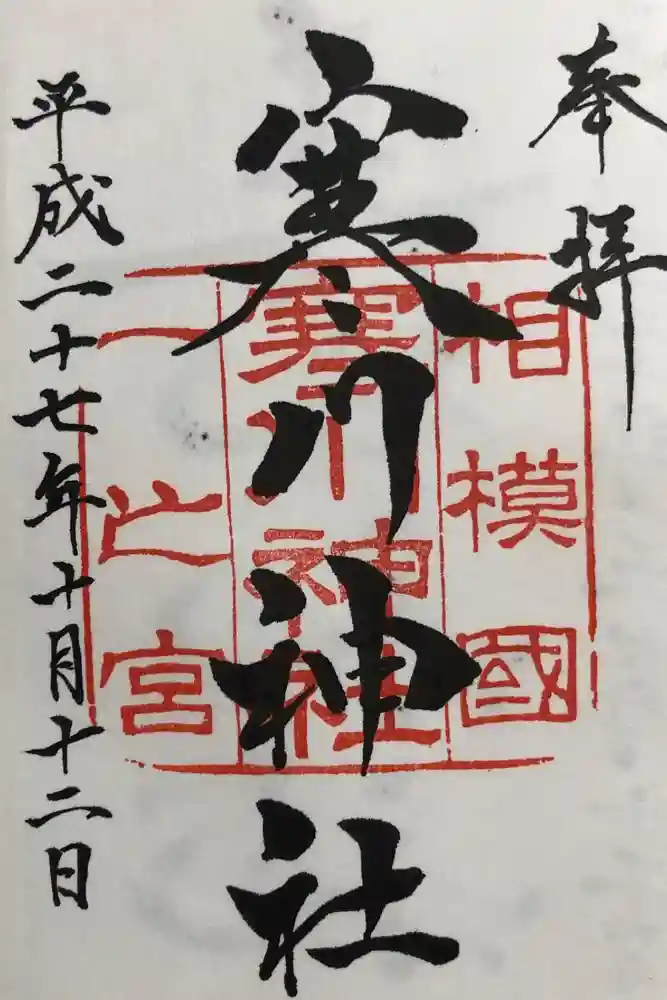 奉拝
相模國
寒川神社
寒川神社
一之宮
平成二十七年十月十二日